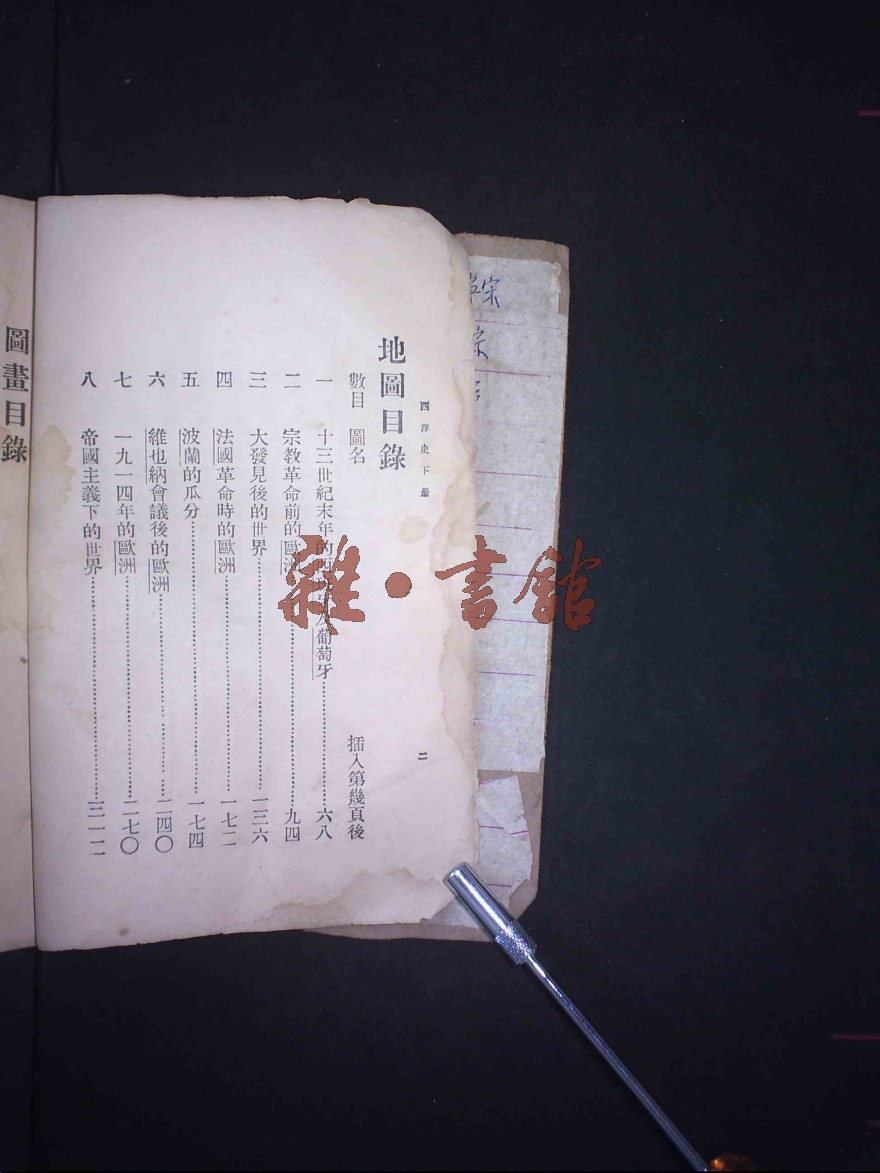 西洋史下册
二
地圖目錄
數目 圖名 插入第幾頁後
一 十三世紀末年的西班牙及葡萄牙 六八
二 宗教革命前的歐洲 九四
三 大發見後的世界 一三六
四 法國革命時的歐洲 一七二
五 波蘭的瓜分 一七四
六 維也納會議後的歐洲 二四〇
七 一九一四年的歐洲 二七〇
八 帝國主義下的世界 三一二
圖畫目錄
雜·書館
宗
宗